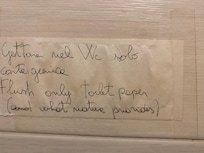 Gettare nel Wc solo
carta igienica
Flush only toilet paper
(and what nature provides)